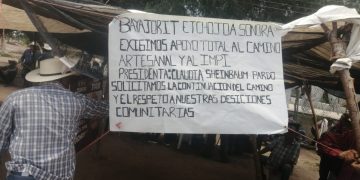 BAYAJORIT ETCHOJOA SONORA
EXIGIMOS APOYO TOTAL AL CAMINO
ARTESANAL Y AL IMPI.
PRESIDENTA: CLAUDIA SHEINBAUM PARDO
SOLICITAMOS LA CONTINUACION DEL CAMINO
Y EL RESPETO A NUESTRAS DESICIONES
COMUNITARIAS